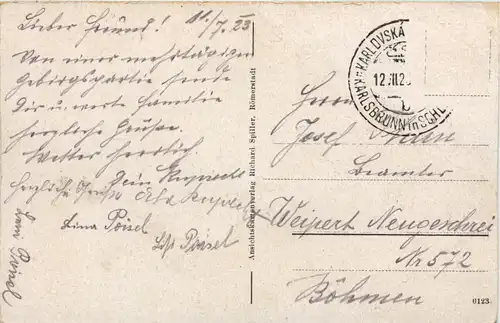 Lieber Freund! 11./7.23
Von einer mehrtägigen
Gebirgspartie sende
Dir u. werte Familie
herzliche Grüße.
Wetter herrlich.
Dein Ruppert
Herzliche Grüße
Lina Poisel
Poisel
Ansichtskartenverlag Richard Spiller, Römerstadt
KARLOVSKA
12.VII.23
KARLSBRUNN in SCHL
b
Herrn
Josef
Beamter
Weipert Neugeschrei
Nr 572
Böhmen
0123